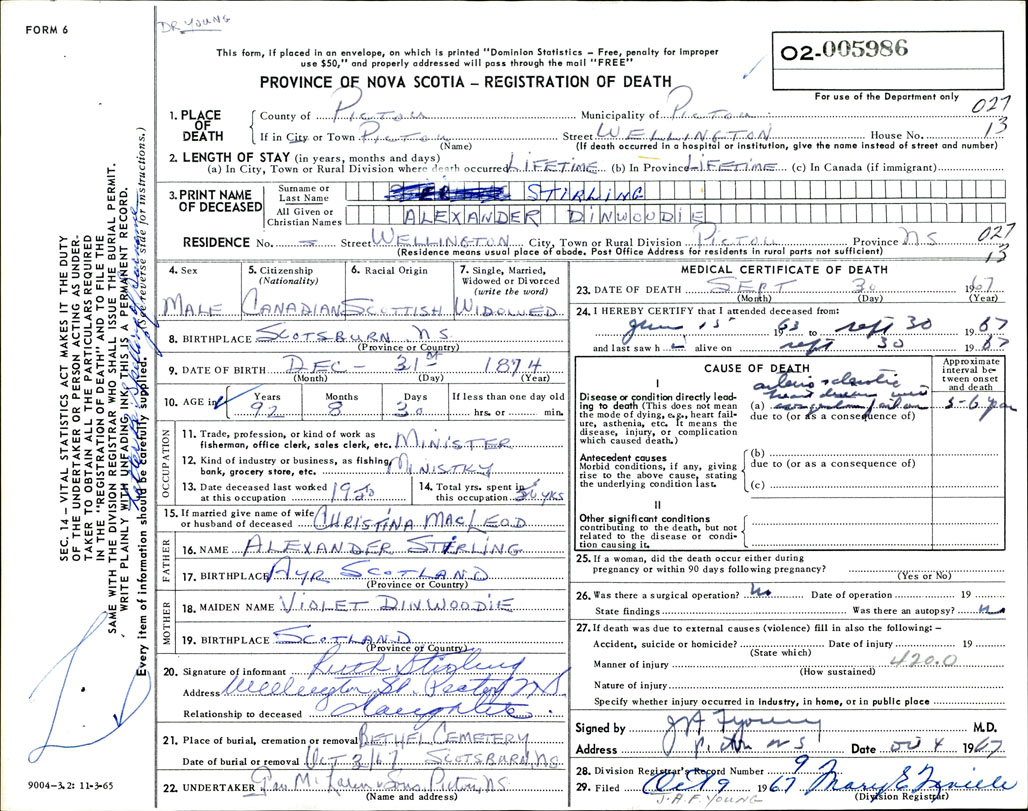 FORM 6
DR YOUNG
This form, if placed in an envelope, on which is printed "Dominion Statistics – Free, penalty for improper
use $50," and properly addressed will pass through the mail "FREE"
02-005986
PROVINCE OF NOVA SCOTIA – REGISTRATION OF DEATH
For use of the Department only
1. PLACE OF DEATH
County of PICTOU Municipality of PICTOU 027
If in City or Town PICTOU Street WELLINGTON House No. 13
(Name) (If death occurred in a hospital or institution, give the name instead of street and number)
2. LENGTH OF STAY (in years, months and days)
(a) In City, Town or Rural Division where death occurred LIFETIME (b) In Province LIFETIME (c) In Canada (if immigrant)
3. PRINT NAME OF DECEASED
Surname or Last Name STIRLING
All Given or Christian Names ALEXANDER DINWOODIE
RESIDENCE No. – Street WELLINGTON City, Town or Rural Division PICTOU Province NS 027 13
(Residence means usual place of abode. Post Office Address for residents in rural parts not sufficient)
4. Sex MALE
5. Citizenship (Nationality) CANADIAN
6. Racial Origin SCOTTISH
7. Single, Married, Widowed or Divorced (write the word) WIDOWED
8. BIRTHPLACE SCOTSBURN N.S.
(Province or Country)
9. DATE OF BIRTH DEC – 31st 1874
(Month) (Day) (Year)
10. AGE in Years 92 Months 8 Days 30 If less than one day old hrs. or min.
OCCUPATION
11. Trade, profession, or kind of work as fisherman, office clerk, sales clerk, etc. MINISTER
12. Kind of industry or business, as fishing, bank, grocery store, etc. MINISTRY
13. Date deceased last worked at this occupation
14. Total yrs. spent in this occupation YRS
15. If married give name of wife or husband of deceased CHRISTINA MACLEOD
FATHER
16. NAME ALEXANDER STIRLING
17. BIRTHPLACE AYR SCOTLAND
(Province or Country)
MOTHER
18. MAIDEN NAME VIOLET DINWOODIE
19. BIRTHPLACE SCOTLAND
(Province or Country)
20. Signature of informant Ruth Stirling
Address Wellington St. Pictou N S
Relationship to deceased daughter
21. Place of burial, cremation or removal BETHEL CEMETERY
Date of burial or removal OCT 3/67 SCOTSBURN, NS.
22. UNDERTAKER & Sons Pictou, N.S.
(Name and address)
MEDICAL CERTIFICATE OF DEATH
23. DATE OF DEATH SEPT 30 1967
(Month) (Day) (Year)
24. I HEREBY CERTIFY that I attended deceased from:
June 15 1963 to sept 30 1967
and last saw h alive on sept 30 1967
CAUSE OF DEATH
Approximate interval between onset and death
I
Disease or condition directly leading to death (This does not mean the mode of dying, e.g., heart failure, asthenia, etc. It means the disease, injury, or complication which caused death.)
(a) heart disease with failure
due to (or as a consequence of)
Antecedent causes
Morbid conditions, if any, giving rise to the above cause, stating the underlying condition last.
(b)
due to (or as a consequence of)
(c)
II
Other significant conditions contributing to the death, but not related to the disease or condition causing it.
25. If a woman, did the death occur either during
pregnancy or within 90 days following pregnancy?
(Yes or No)
26. Was there a surgical operation? No Date of operation 19
State findings Was there an autopsy? No
27. If death was due to external causes (violence) fill in also the following: –
Accident, suicide or homicide? Date of injury 19
(State which)
Manner of injury 420.0
(How sustained)
Nature of injury
Specify whether injury occurred in Industry, in home, or in public place
Signed by J A F Young M.D.
Address Pictou NS Date Oct 4 1967
28. Division Registrar's Record Number 9
29. Filed Oct 9 1967 Mary E.
(Division Registrar)
J.A.F. YOUNG
SEC. 14 – VITAL STATISTICS ACT MAKES IT THE DUTY
OF THE UNDERTAKER OR PERSON ACTING AS UNDER-
TAKER TO OBTAIN ALL THE PARTICULARS REQUIRED
IN THE "REGISTRATION OF DEATH" AND TO FILE THE
SAME WITH THE DIVISION REGISTRAR WHO SHALL ISSUE THE BURIAL PERMIT.
WRITE PLAINLY WITH UNFADING INK. THIS IS A PERMANENT RECORD.
Every item of information should be carefully supplied. (See reverse side for instructions.)
9004-3.2: 11-3-65